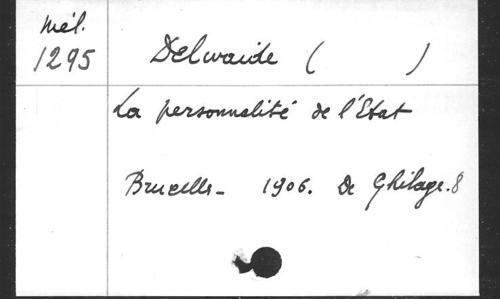 Mél.
1295
Delwaide ( )
La personnalité de l'Etat
Bruxelles - 1906. De Ghilage. 8